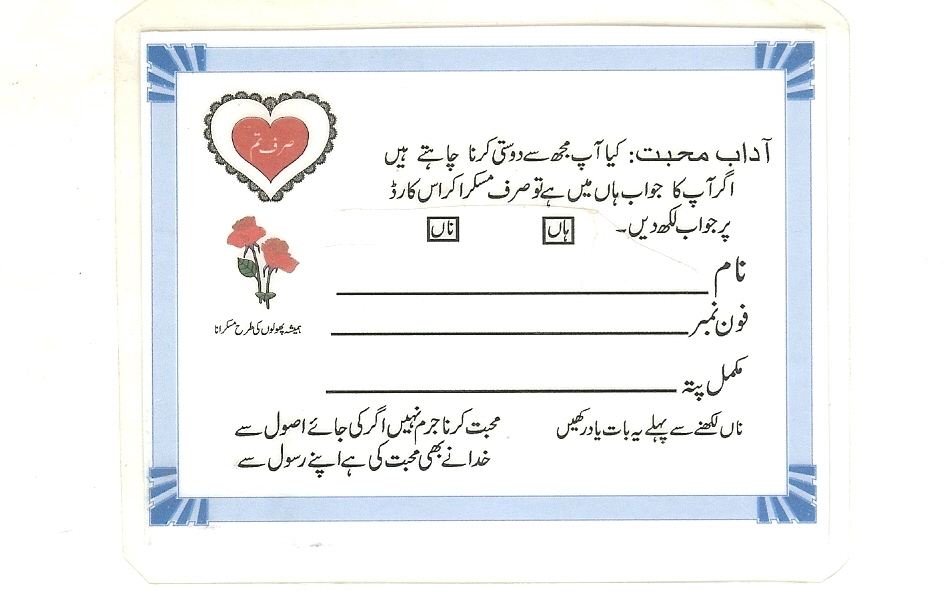 صرف تم
آداب محبت: کیا آپ مجھ سے دوستی کرنا چاہتے ہیں
اگر آپ کا جواب ہاں میں ہے تو صرف مسکرا کر اس کارڈ
پر جواب لکھ دیں۔ ہاں ناں
نام
فون نمبر
ہمیشہ پھولوں کی طرح مسکرانا
مکمل پتہ
ناں لکھنے سے پہلے یہ بات یاد رکھیں
محبت کرنا جرم نہیں اگر کی جائے اصول سے
خدا نے بھی محبت کی ہے اپنے رسول سے